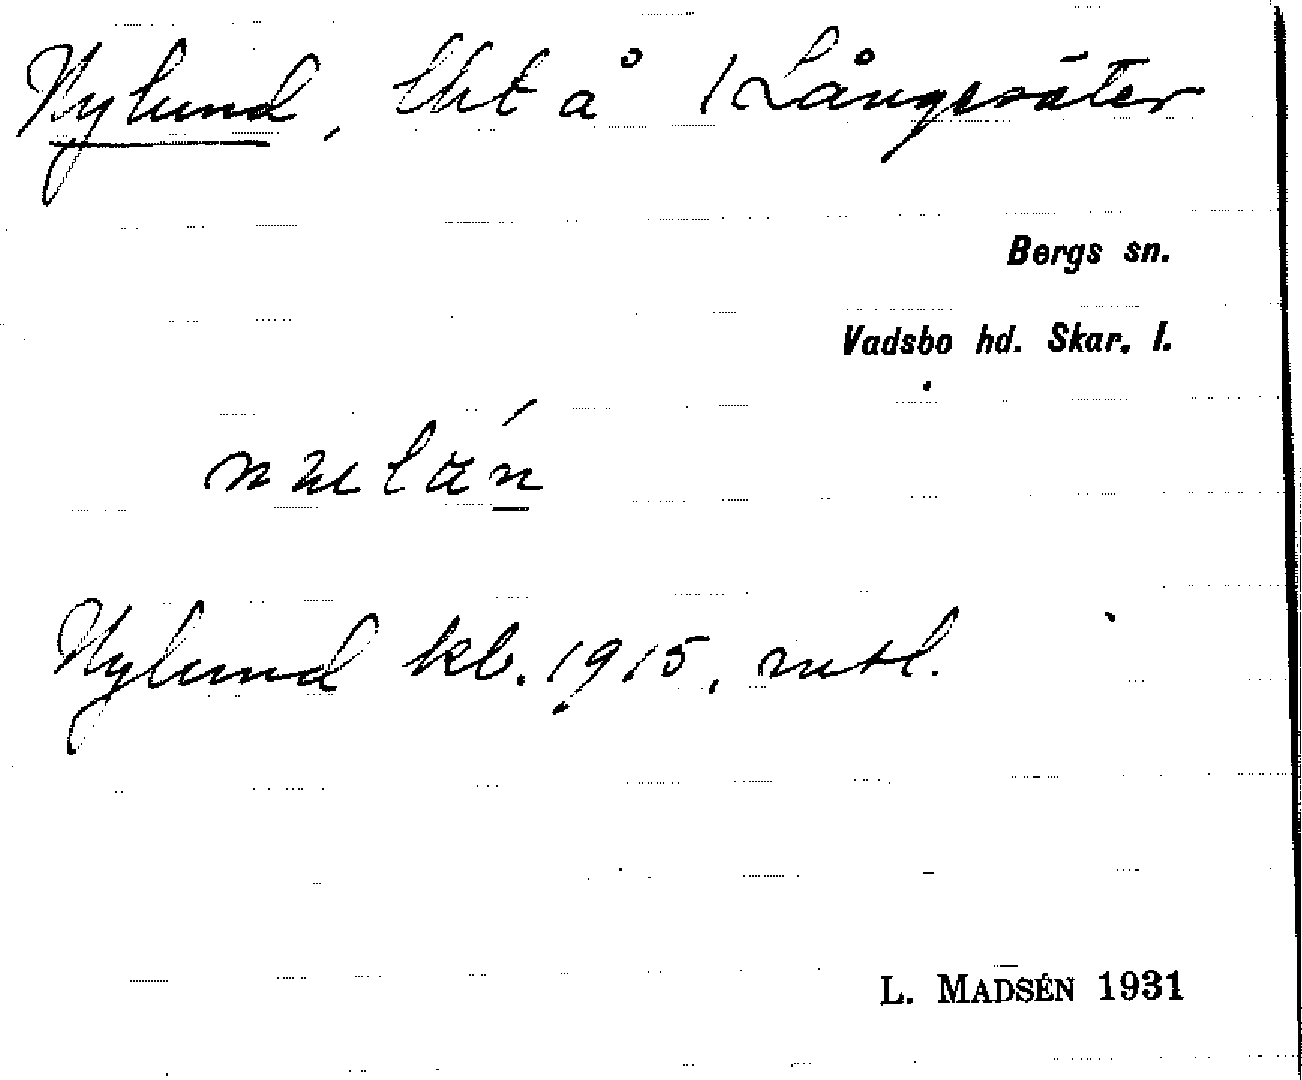 Nylund, lht å 1 Långesäter
Bergs sn.
Vadsbo hd. Skar. l.
Nylund kb. 1915, mtl.
L. MADSÉN 1931